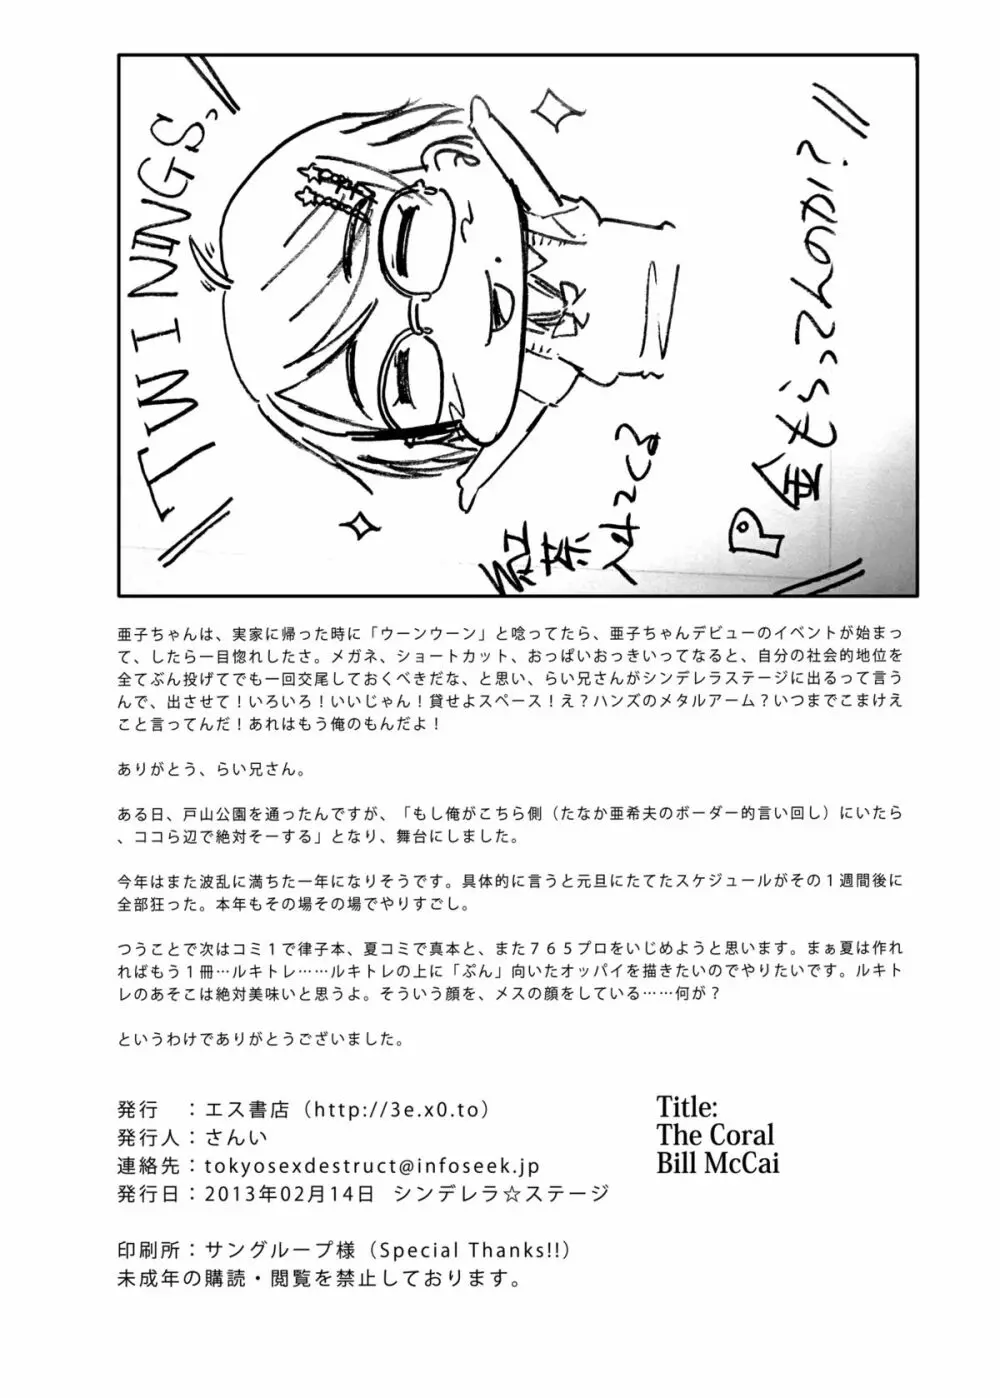 TWININGS,
紅茶
P金もらってんのか?
亜子ちゃんは、実家に帰った時に「ウーンウーン」と唸ってたら、亜子ちゃんデビューのイベントが始まっ
て、したら一目惚れしたさ。メガネ、ショートカット、おっぱいおっきいってなると、自分の社会的地位を
全てぶん投げてでも一回交尾しておくべきだな、と思い、らい兄さんがシンデレラステージに出るって言う
んで、出させて！いろいろ！いいじゃん！貸せよスペース！え？ハンズのメタルアーム？いつまでこまけえ
こと言ってんだ！あれはもう俺のもんだよ！
ありがとう、らい兄さん。
ある日、戸山公園を通ったんですが、「もし俺がこちら側（たなか亜希夫のボーダー的言い回し）にいたら
、ココら辺で絶対そーする」となり、舞台にしました。
今年はまた波乱に満ちた一年になりそうです。具体的に言うと元旦にたてたスケジュールがその１週間後に
全部狂った。本年もその場その場でやりすごし。
つうことで次はコミ１で律子本、夏コミで真本と、また７６５プロをいじめようと思います。まぁ夏は作れ
ればもう１冊…ルキトレ……ルキトレの上に「ぷん」向いたオッパイを描きたいのでやりたいです。ルキト
レのあそこは絶対美味いと思うよ。そういう顔を、メスの顔をしている……何が？
というわけでありがとうございました。
発行　：エス書店（http://3e.x0.to）
発行人：さんい
連絡先：tokyosexdestruct@infoseek.jp
発行日：2013年02月14日　シンデレラ☆ステージ
印刷所：サングループ様（Special Thanks!!）
未成年の購読・閲覧を禁止しております。
Title:
The Coral
Bill McCai